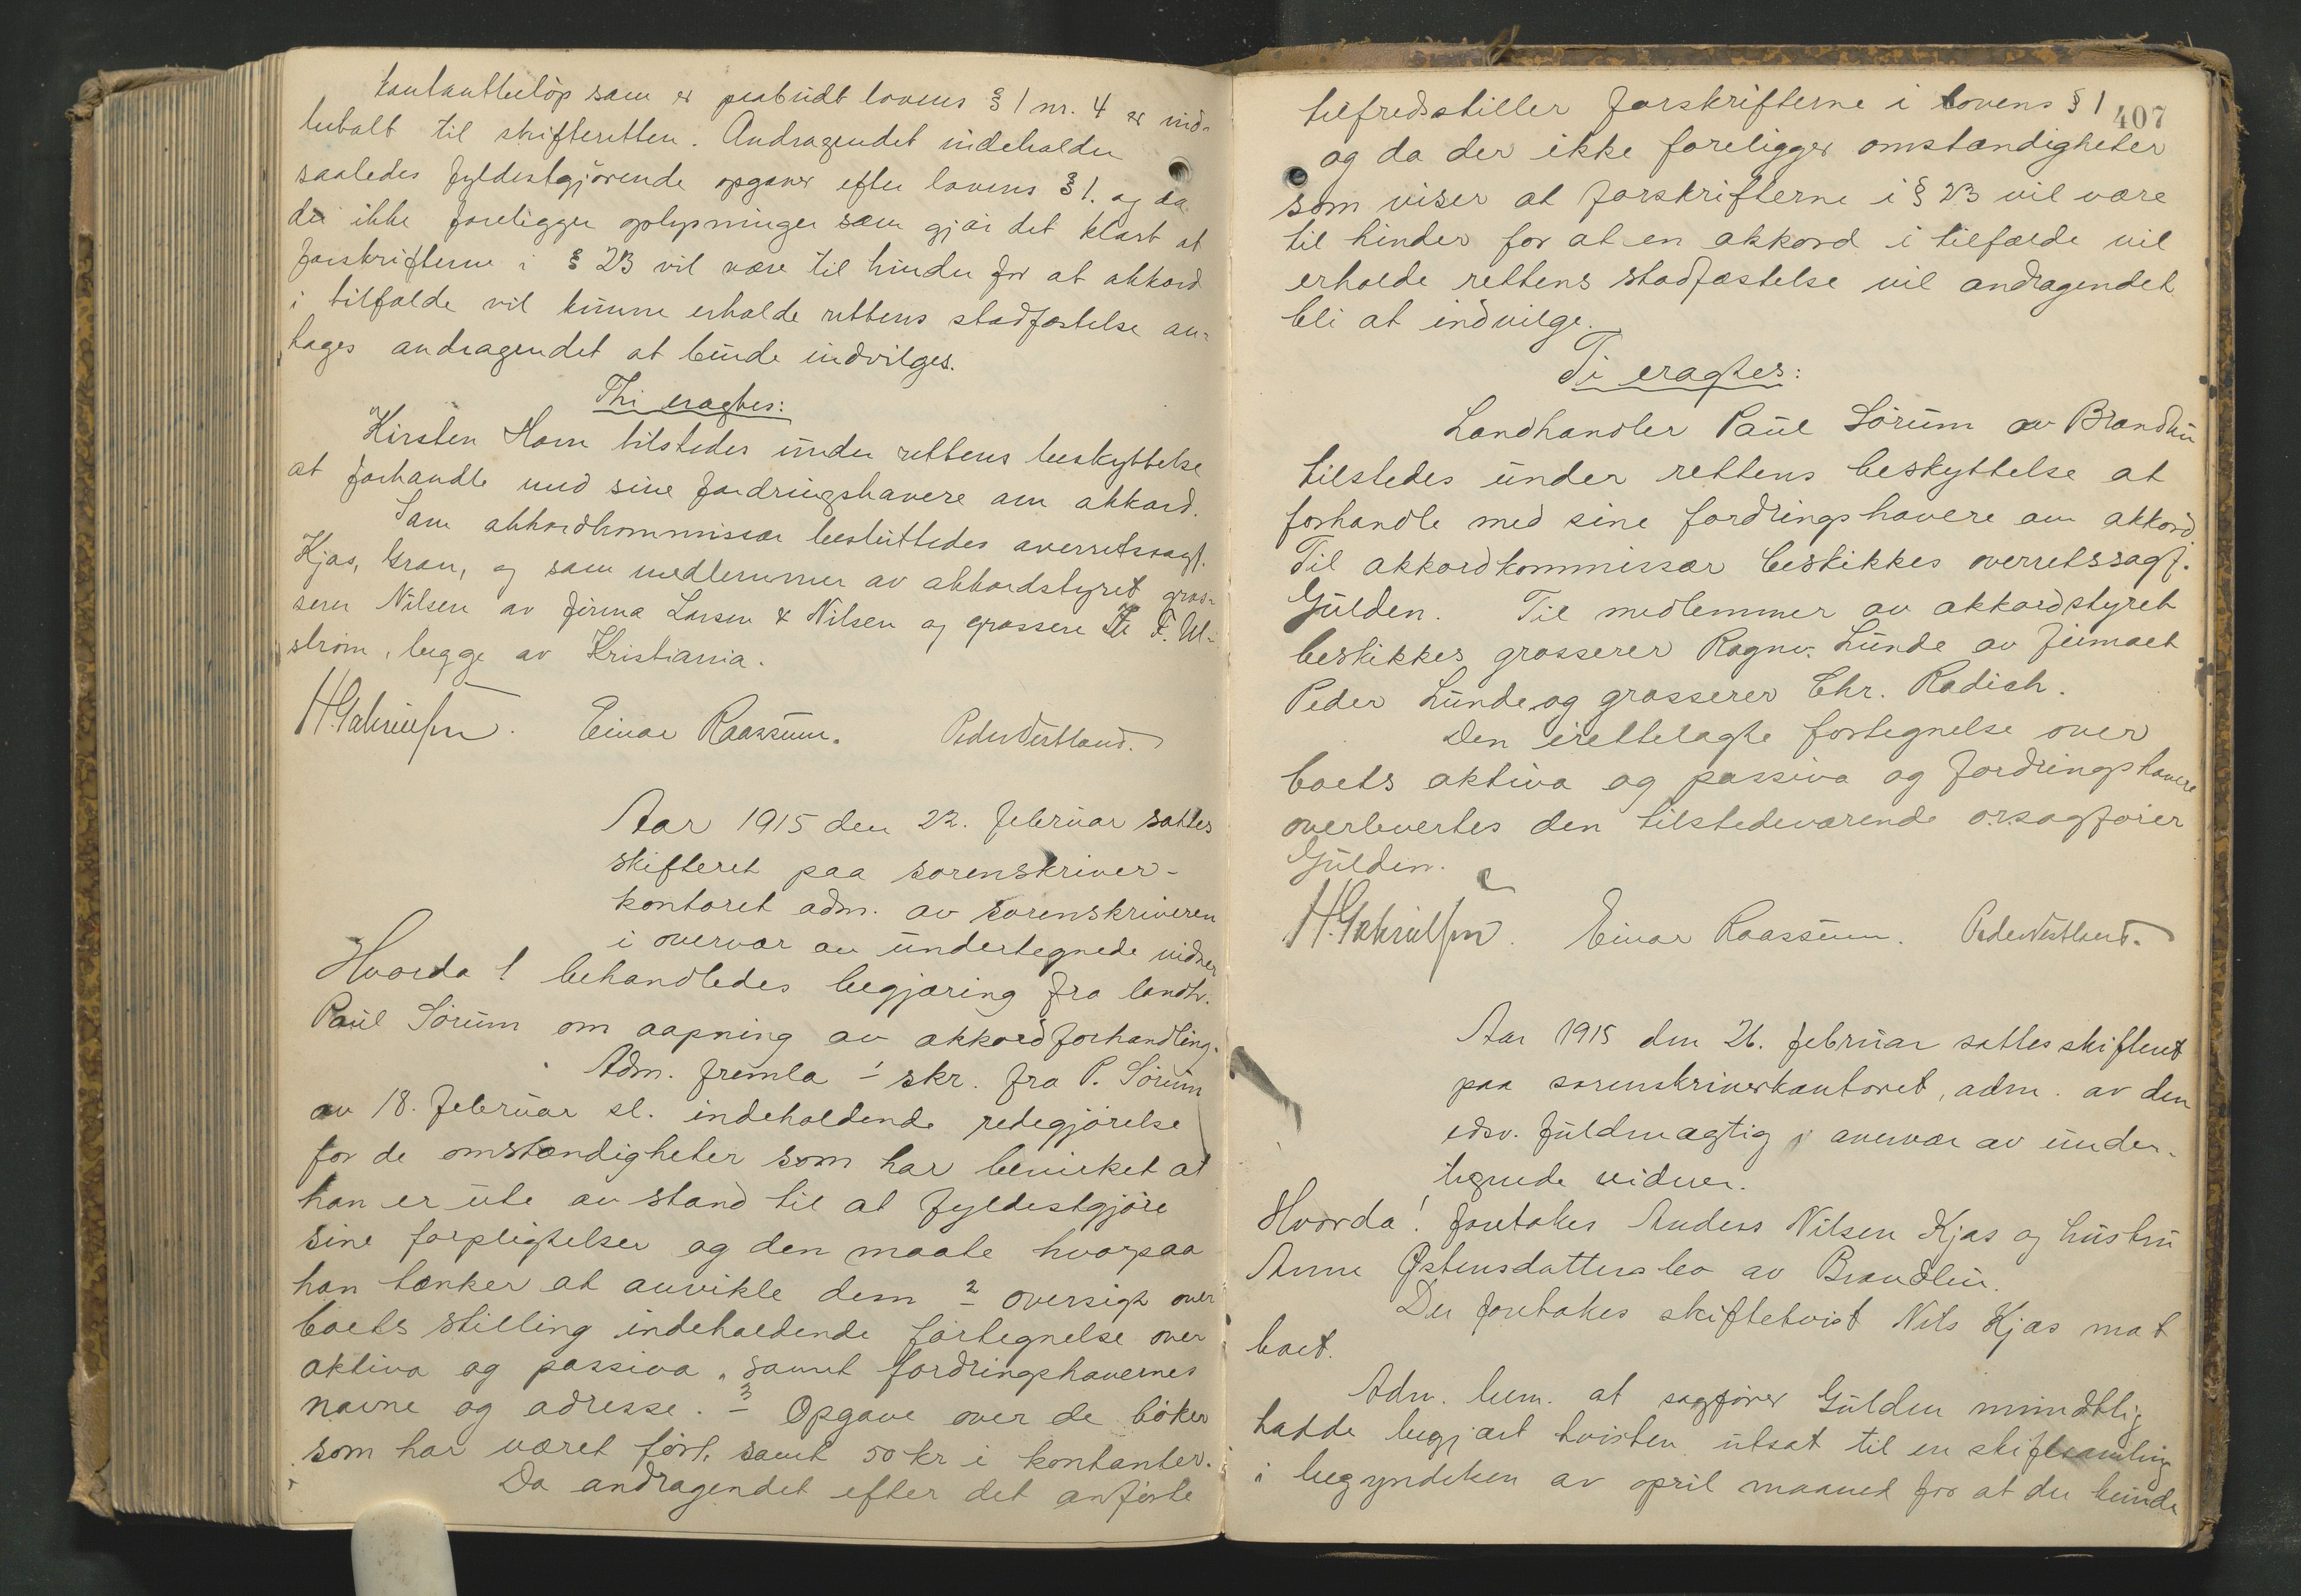 kontantbeløp som er paabudt lovens § 1 nr. 4 er ind-
betalt til skifteretten. Andragendet indeholder
saaledes fyldestgjørende opgaver efter lovens § 1. og da
der ikke foreligger oplysninger som gjør det klart at
forskrifterne i § 23 vil være til hinder for at akkord
i tilfælde vil kunne erholde rettens stadfæstelse an-
tages andragendet at burde indvilges.
Thi eragtes:
Kirsten Horn tilstedes under rettens beskyttelse
at forhandle med sine fordringshavere om akkord.
Som akkordkommissær besluttedes overretssagf.
Kjos, Gran, og som medlemmer av akkordstyret gros-
serer Nilsen av firma Larsen & Nilsen og grosserer F. Ul-
strøm, begge av Kristiania.
H. Gabrielsen. Einar Raassum. Peder Vestland.
Aar 1915 den 22. februar sattes
skifteret paa sorenskriver-
kontoret adm. av sorenskriveren
i overvær av undertegnede vidner
Hvorda ! behandledes begjæring fra landh.
Paul Sørum om aapning av akkordforhandling.
Adm. fremla 1 skr. fra P. Sørum
av 18. februar sl. indeholdende redegjørelse
for de omstændigheter som har bevirket at
han er ute av stand til at fyldestgjøre
sine forpligtelser og den maate hvorpaa
han tænker at avvikle dem 2 oversigt over
boets stilling indeholdende fortegnelse over
aktiva og passiva, samt fordringshavernes
navne og adresse. 3 Opgave over de bøker
som har været ført, samt 50 kr i kontanter.
Da andragendet efter det anførte
407
tilfredsstiller forskrifterne i lovens § 1
og da der ikke foreligger omstændigheter
som viser at forskrifterne i § 23 vil være
til hinder for at en akkord i tilfælde vil
erholde rettens stadfæstelse vil andragendet
bli at indvilge.
Ti eragtes:
Landhandler Paul Sørum av Brandbu
tilstedes under rettens beskyttelse at
forhandle med sine fordringshavere om akkord.
Til akkordkommissær beskikkes overretssagf.
Gulden. Til medlemmer av akkordstyret
beskikkes grosserer Ragnv. Lunde av firmaet
Peder Lunde og grosserer Chr. Radich.
Den irettelagte fortegnelse over
boets aktiva og passiva og fordringshavere
overlevertes den tilstedeværende o.rsagfører
Gulden.
H. Gabrielsen. Einar Raassum. Peder Vestland.
Aar 1915 den 26. februar sattes skifteret
paa sorenskriverkontoret, adm. av den
edsv. fuldmægtig i overvær av under-
tegnede vidner.
Hvorda ! foretokes Anders Nilsen Kjos og hustru
Anne Østensdatters bo av Brandbu.
Der foretokes skiftetvist Nils Kjos mot
boet.
Adm. bem. at sagfører Gulden mundtlig
hadde begjært tvisten utsat til en skiftesamling
i begyndelsen av april maaned for at der kunde